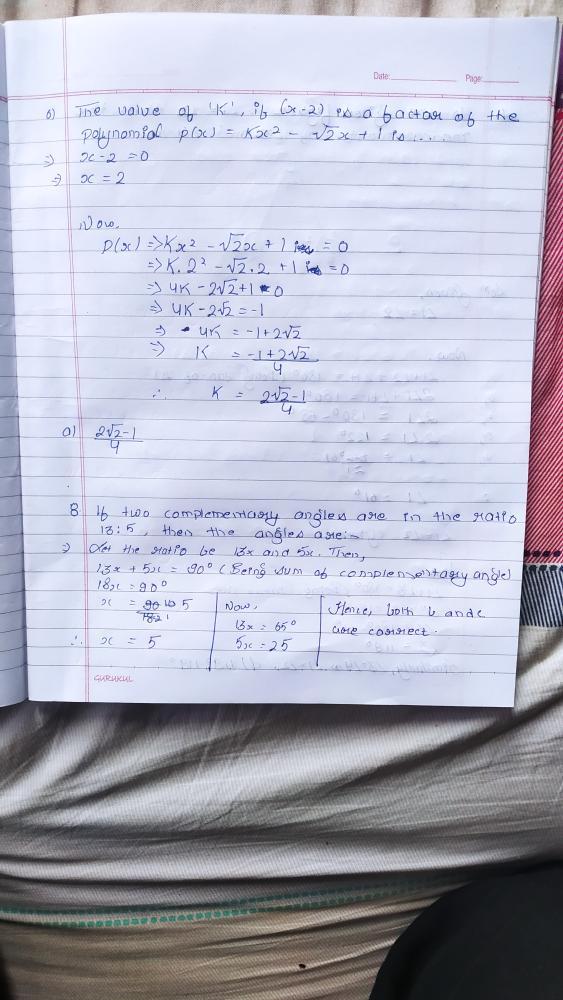 Date: Page:
6) The value of 'K', if (x-2) is a factor of the
polynomial p(x) = Kx² - √2x + 1 is...
=> x-2 = 0
=> x = 2
Now,
P(x) => Kx² - √2x + 1 = 0
=> K.2² - √2.2 + 1 = 0
=> 4K - 2√2+1 = 0
=> 4K - 2√2 = -1
=> 4K = -1+2√2
=> K = -1+2√2/4
∴ K = 2√2-1/4
a) 2√2-1/4
8 If two complementary angles are in the ratio
13:5, then the angles are:-
=> Let the ratio be 13x and 5x. Then,
13x + 5x = 90° (Being sum of complementary angle)
18x = 90°
x = 90 10 5/18 2 1
∴ x = 5
Now,
13x = 65°
5x = 25
Hence, both b and c
are correct.
GURUKUL